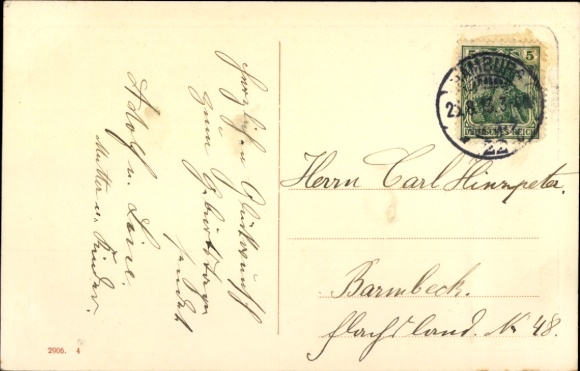 Herzlichen Glückwunsch
zum Geburtstage
sendet
Adolf u. Line.
Mutter u. Kinder.
5 5
DEUTSCHES REICH
HAMBURG
22
Herrn Carl Hinrpeter.
Barmbeck.
Flachsland. No 48.
2906. 4